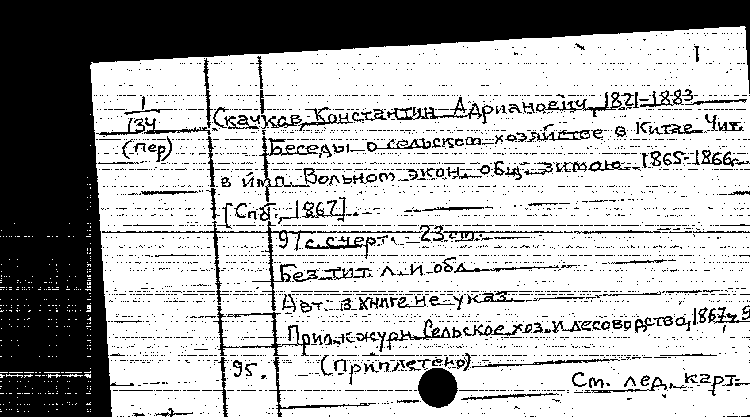 1
134
(пер)
Скачков, Константин Адрианович, 1821-1883
Беседы о сельском хозяйстве в Китае. Чит.
в имп. Вольном экон. общ. зимою 1865-1866
[Спб., 1867].
97 с. с черт. 23 см.
Без тит. л. и обл.
Авт. в книге не указ.
Прил. к журн. Сельское хоз. и лесоводство, 1867,
95. (Приплетено)
См. лед. карт.